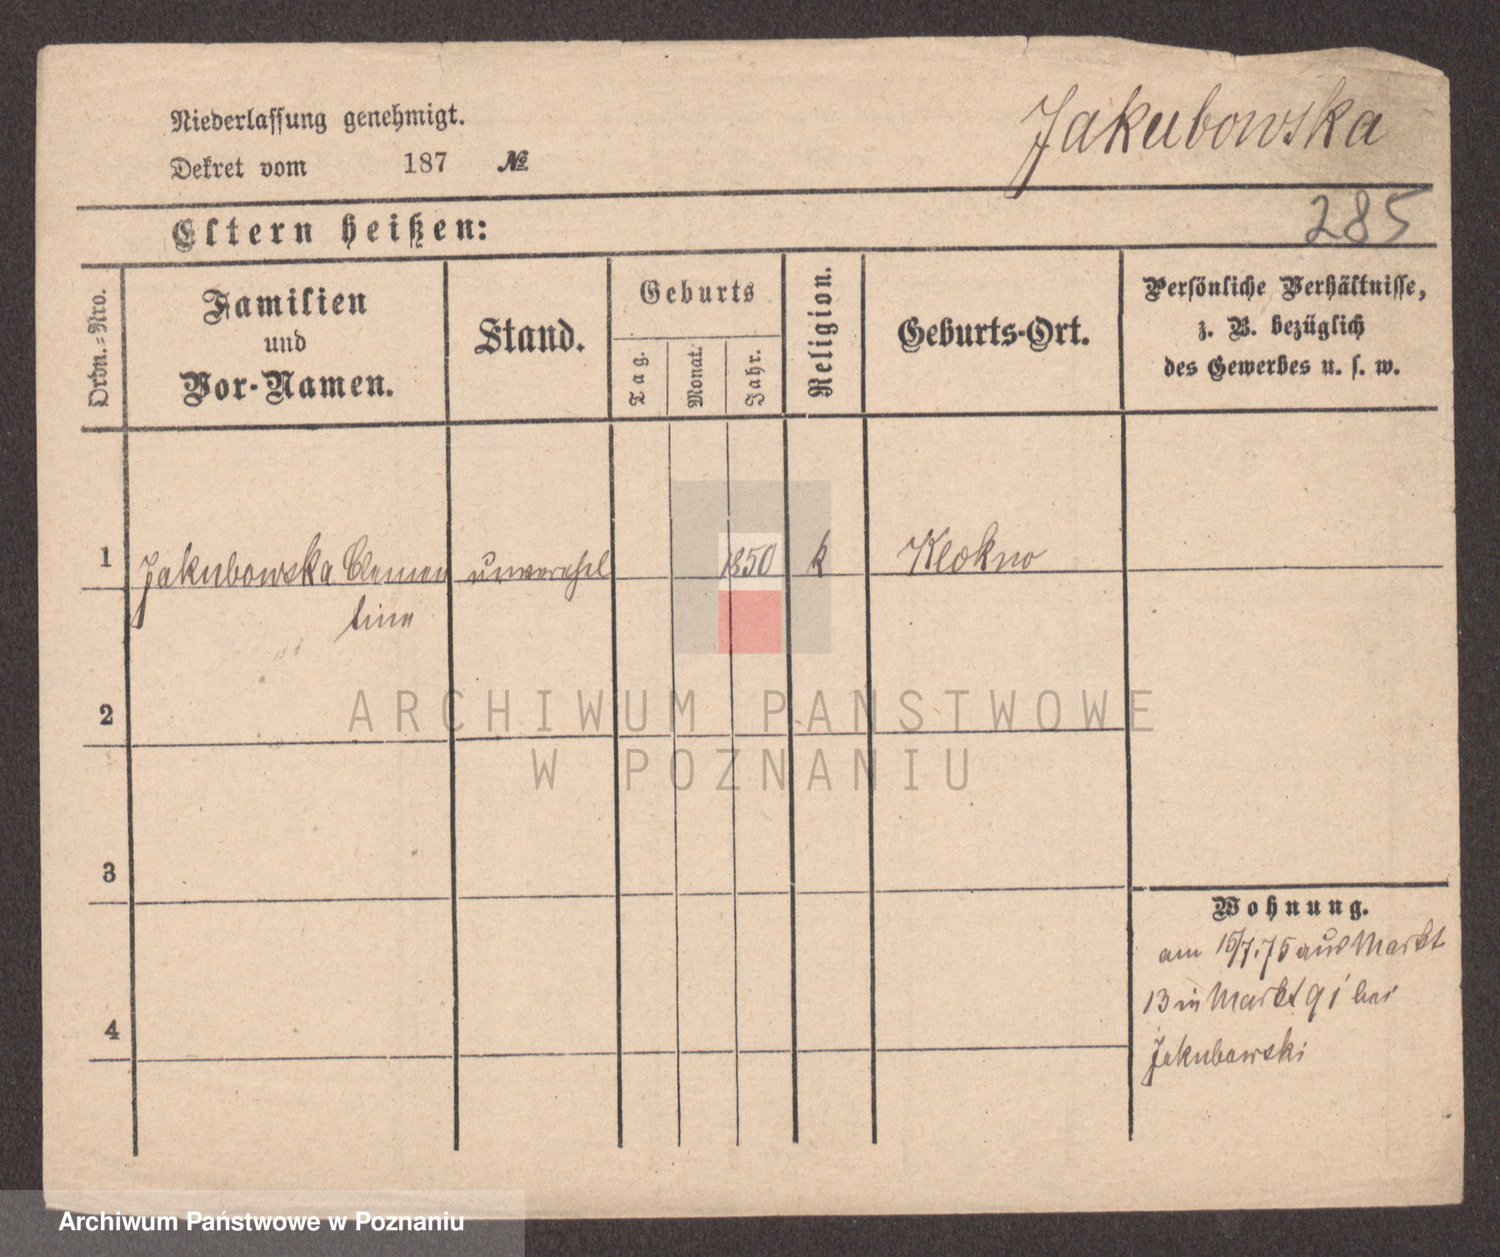 Niederlassung genehmigt.
Dekret vom 187 №
Jakubowska
285
Eltern heißen:
Ordn.-Nro.
Familien
und
Vor-Namen.
Stand.
Geburts
Tag.
Monat.
Jahr.
Religion.
Geburts-Ort.
Persönliche Verhältnisse,
z. B. bezüglich
des Gewerbes u. s. w.
1 Jakubowska Clemen unverehel 1850 k Klekno
tine
2
3
4
Wohnung.
am 15/7.75 aus Markt
13 in Markt 91 bei
Jakubowski
ARCHIWUM PAŃSTWOWE
W POZNANIU
Archiwum Państwowe w Poznaniu